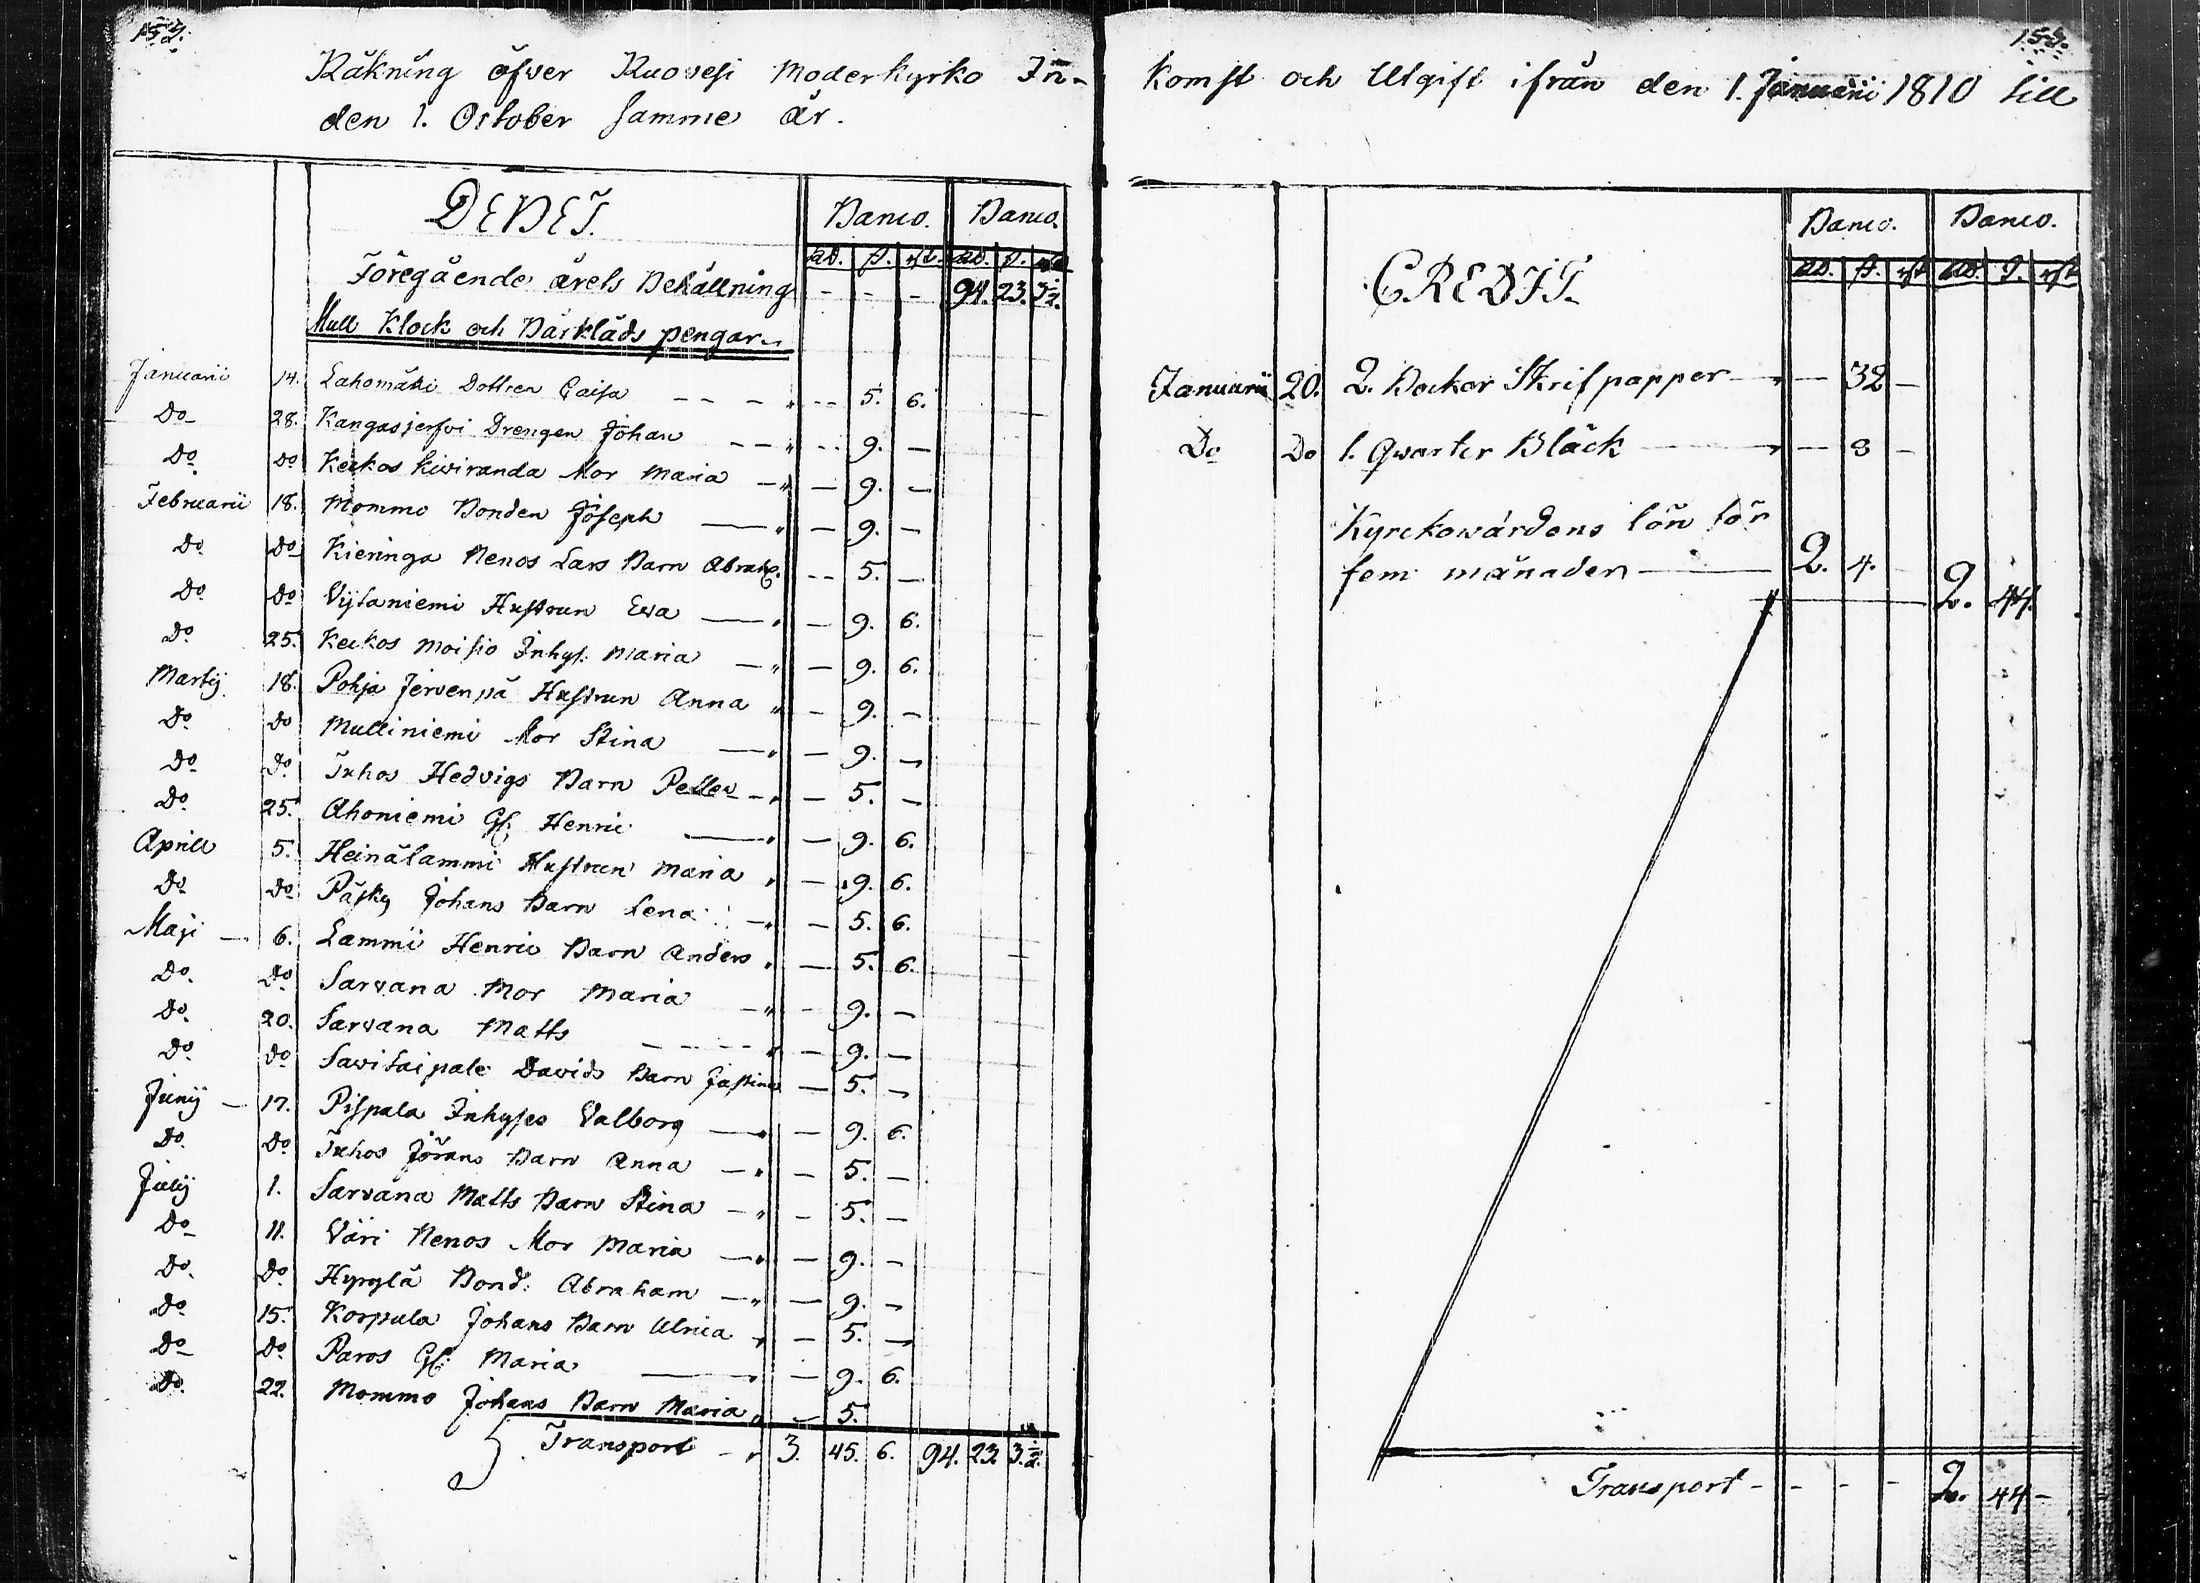 Räkning öfwer Ruovesi Moderkyrko In-
den 1. October samme år.
DEBET.
Banco. Banco.
RD. ß. rst. RD. ß. rst.
Föregående årets Behållning - - - 94. 23. 3 1/2.
Mull Klock och Bårkläds pengar
Januarii 14. Lahomäki Dottren Caisa - - - " - - 5. 6.
Do 28. Kangasjerfvi Drengen Johan - - " - - 9. —
Do Do Keckos kiviranda Mor Maria — " — 9. —
Februarii 18. Mommo Bonden Joseph — " — 9. —
Do Do Kieringa Nenos Lars Barn Abrah. - - 5. —
Do Do Vytaniemi Hustrun Ewa — " — 9. 6.
Do 25. Keckos Moisio Inhys. Maria — " — 9. 6.
Martij 18. Pohja Jervenpä Hustrun Anna " — 9. —
Do Do Mulliniemi Mor Stina — " — 9. —
Do Do Tuhos Hedvigs Barn Petter — " — 5. —
Do 25. Ahoniemi Gl. Henric — " — 9. 6.
Aprill 5. Heinälammi Hustrun Maria " — 9. 6.
Do Do Päsky Johans Barn Lena — " — 5. 6.
Maji — 6. Lammi Henric Barn Anders " — 5. 6.
Do Do Sarvana Mor Maria — " — 9. —
Do 20. Sarvana Matts - - - - " — 9. —
Do Do Savitaipale Davids Barn Justina — 5. —
Junij — 17. Pispala Inhyses Valborg — " — 9. 6.
Do Do Tuhos Jörans Barn Anna — " — 5. —
Julij 1. Sarvana Matts Barn Stina — " — 5. —
Do 11. Väri Nenos Mor Maria — " — 9. —
Do Do Hyrylä Bond: Abraham — " — 9. —
Do 15. Korpula Johans Barn Ulrica " — 5. —
Do Do Paros Gl: Maria — " — 9. 6.
Do 22. Mommo Johans Barn Maria " — 5.
Transport — " 3. 45. 6. 94. 23. 3 1/2.
Komst och Utgift ifrån den 1. Januarii 1810 till
Banco. Banco.
RD. ß. rst RD. ß. rst
CREDIT.
Januarii 20. 2. Böcker Skrifpapper — " — 32 —
Do Do 1. Qvarter Bläck — " — 8 —
Kyrckowärdens lön för
fem månader — 2. 4. - 2. 44.
Transport - - - - 2. 44 —